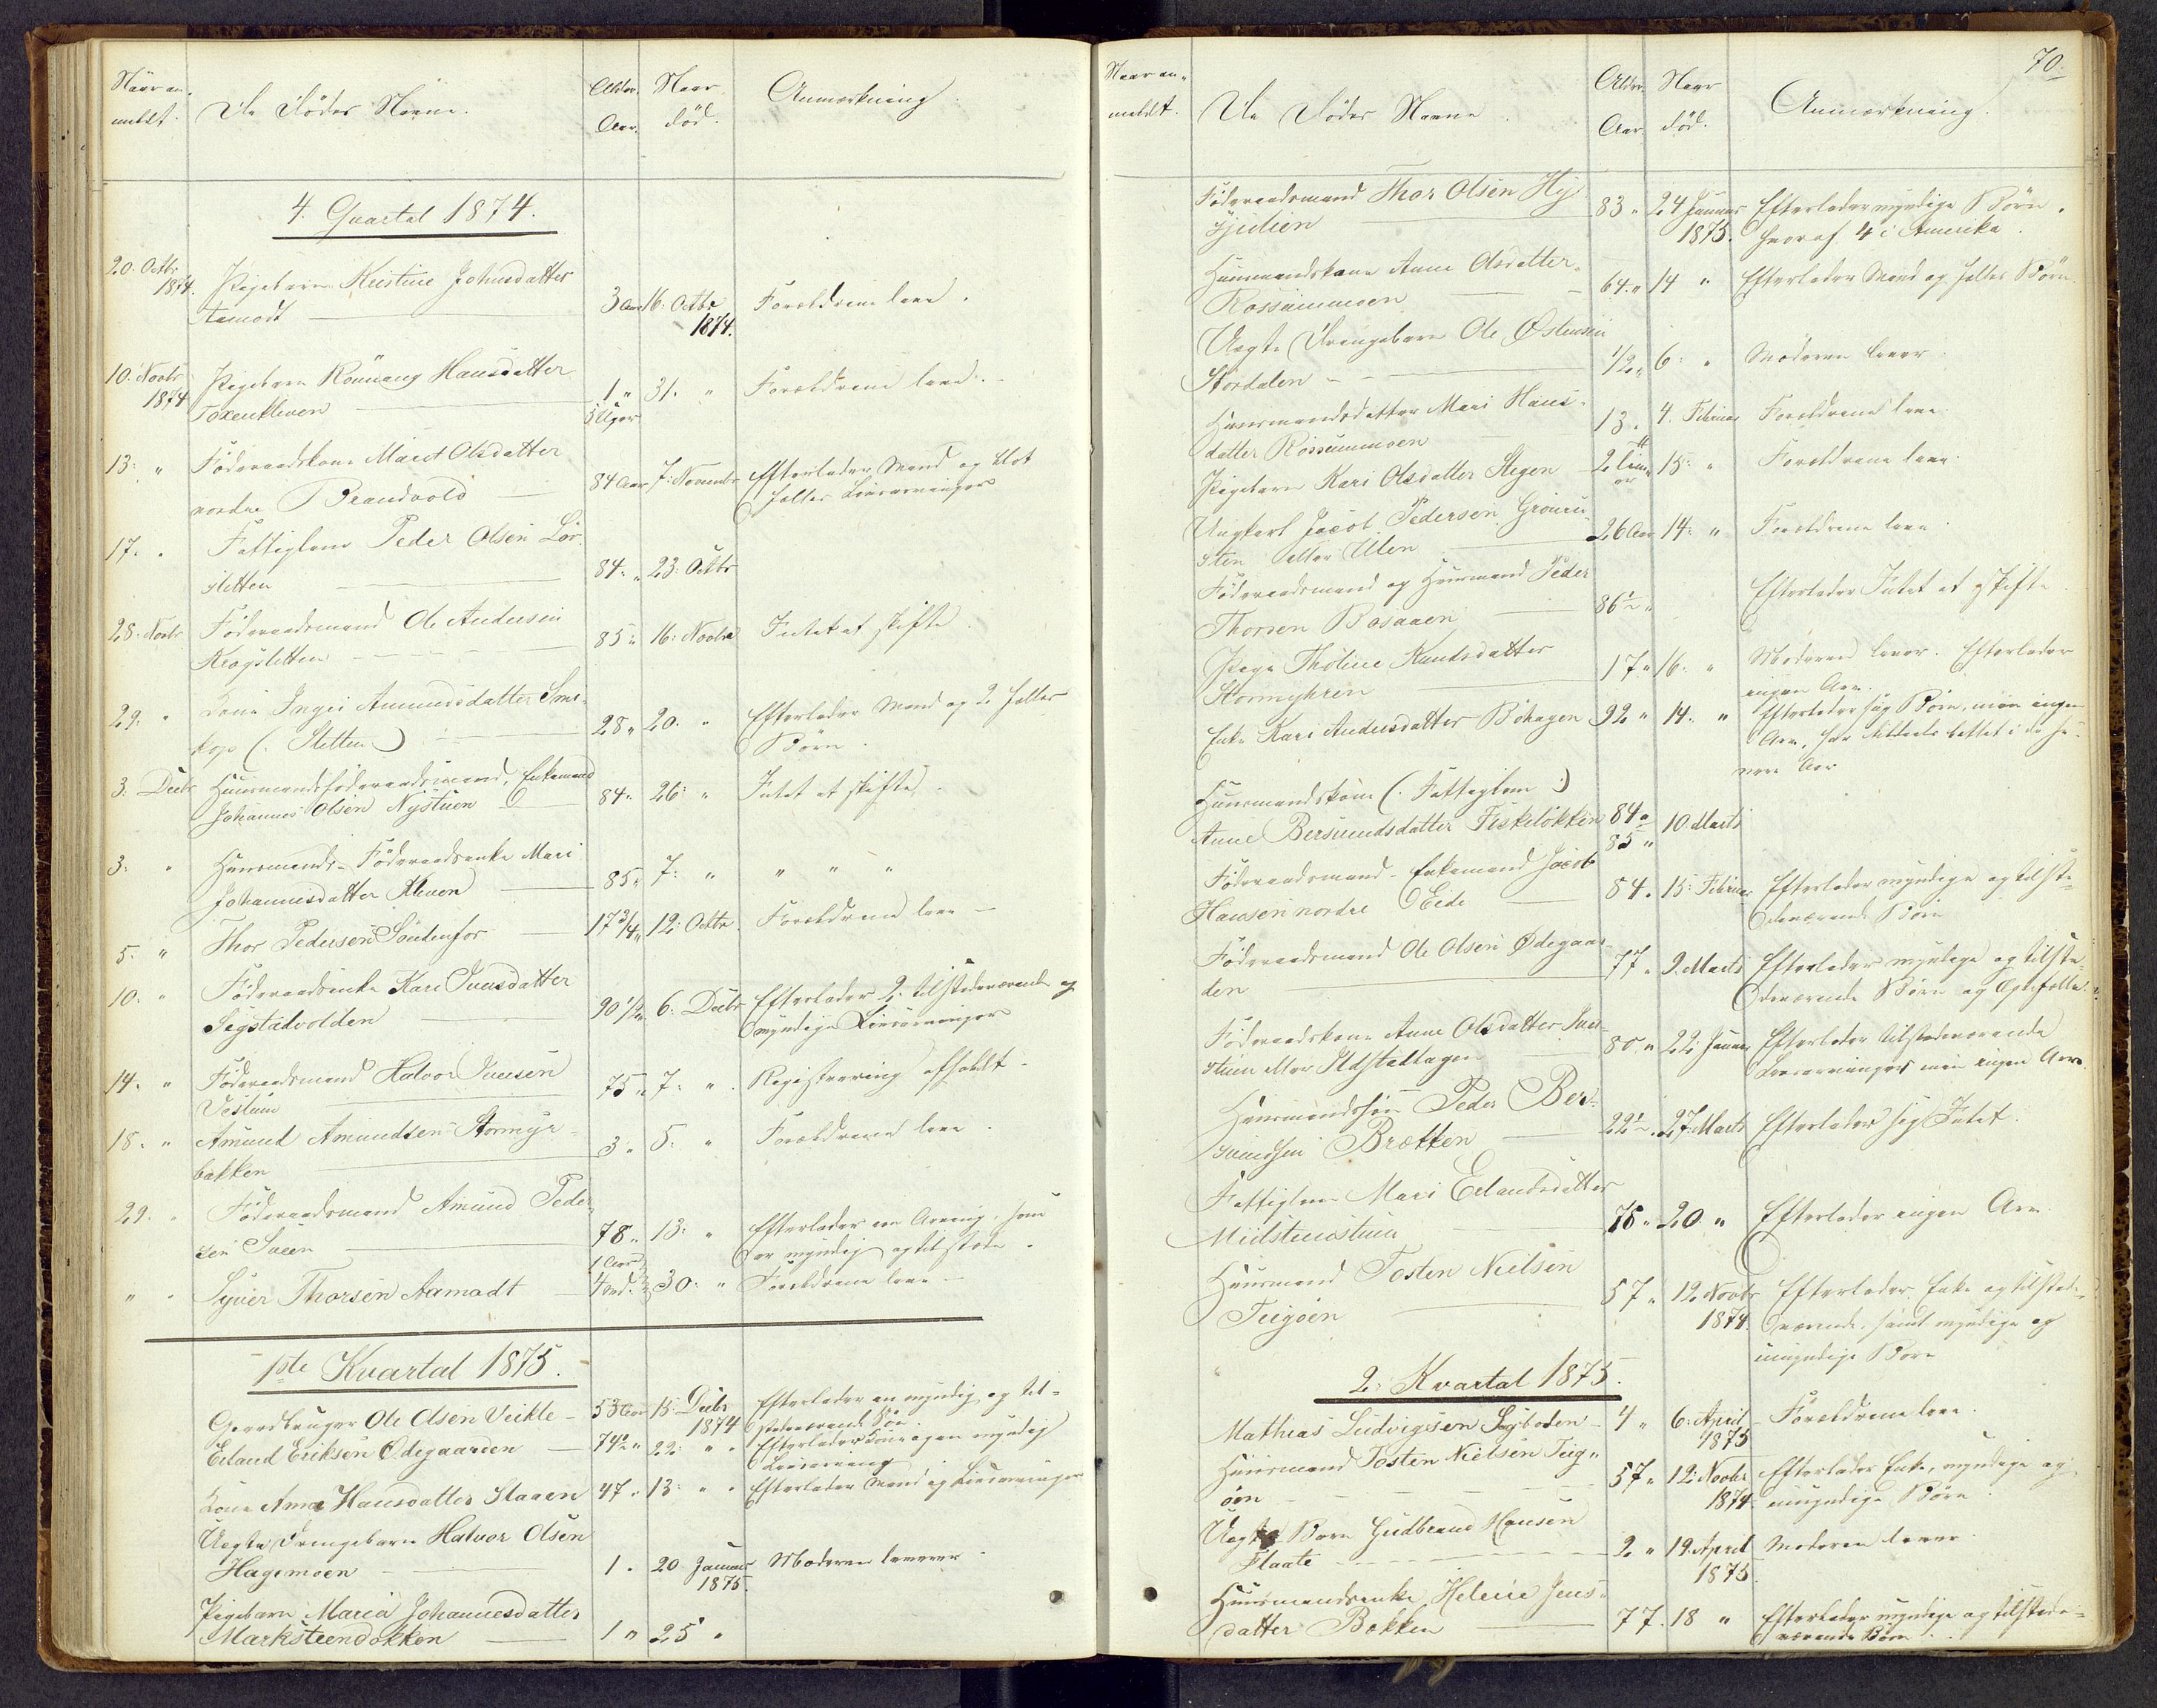 Naar an-
meldt.
De Dødes Navne.
Alder.
Aar.
Naar
død.
Anmærkning.
4. Quartal 1874.
20. Octbr
1874.
Pigebarn Kristine Johnsdatter
Aamodt
3 Aar
16. Octbr
1874.
Forældrene leve.
10. Novbr
1874
Pigebarn Rönnaug Hansdatter
Toxenkleven
1 "
3 Uger
31. "
Forældrene leve.
13. "
Föderaadskone Marit Olsdatter
nordre Brandvold
84 Aar
7. Novembr
Efterlader Mand og blot
fælles Livsarvinger
17. "
Fattiglem Peder Olsen Lör-
sletten
84. "
23. Octbr
28. Novbr
Föderaadsmand Ole Andersen
Krogsletten
85 "
16. Novbr
Intet at skifte.
29. "
Kone Ingri Amundsdatter Sme-
(: Sletten)
28 "
20. "
Efterlader Mand og 2 fælles
Börn.
3. Decbr
Huusmandsföderaadsmand, Enkemand
Johannes Olsen Nystuen
84 "
26. "
Intet at skifte.
3. "
Huusmands-Föderaadsenke Mari
Johannesdatter Kleven
85 "
7. "
" " "
5. "
Thor Pedersen Söndenfor
17 3/4 "
12. Octbr
Forældrene leve
10. "
Föderaadsenke Kari Iversdatter
Sigstadvolden
90 1/2 "
6. Decbr
Efterlader 2. tilstedeværende og
myndige Livsarvinger
14. "
Föderaadsmand Halvor Iversen
Vestum
75 "
7. "
Registrering afholdt.
18. "
Amund Amundsen Stormyr-
bakken
3 "
5. "
Forældrene leve.
29. "
Föderaadsmand Amund Peder-
sen Sveen
78 "
13. "
Efterlader en Arving, som
er myndig og tilstede.
" "
Syver Thorsen Aamodt
1 Aar
4 Md.
30. "
Forældrene leve
1ste Kvartal 1875.
Gaardbruger Ole Olsen Veikle
53 Aar
15. Decbr
1874
Efterlader en myndig og til-
stedeværende Sön.
Erland Eriksen Ödegaarden
74 1/2 "
22. " "
Efterlader Kone og en myndig
Livsarving
Kone Anne Hansdatter Slaaen
47 "
13. " "
Efterlader Mand og Livsarvinger
Uegte Drengebarn Halvor Olsen
Hagemoen
1. "
20 Januar
1875.
Moderen lever
Pigebarn Maria Johannesdatter
Marksteendokken
1 "
25 "
70.
Naar an-
meldt.
De Dødes Navne.
Alder.
Aar.
Naar
død.
Anmærkning.
Föderaadsmand Thor Olsen Hy-
83 "
24 Januar
1875.
Efterlader myndige Börn.
hvoraf 4 i Amerika.
Huusmandskone Anne Olsdatter
Rossummoen
64. "
14 "
Efterlader Mand og fælles Börn
Uegte Drengebarn Ole Østensen
Stordalen
1/2 "
6. "
Moderen lever.
Huusmandsdatter Mari Hans-
datter Rossummoen
13. "
4. Februar
Forældrene leve.
Pigebarn Kari Olsdatter Stegen
15. "
Forældrene leve.
Ungkarl Jacob Pedersen
sten eller Ulen
26 Aar
14. "
Forældrene leve.
Föderaadsmand og Huusmand Peder
Thorsen Bosaaen
86 1/2 "
Efterlader Intet at skifte
Pige Tholine Knudsdatter
Stormyhren
17 "
16. "
Moderen lever. Efterlader
ingen Arv.
Enke Kari Andersdatter Böhagen
92 "
14. "
Efterlader sig Börn, men ingen
Arv, i de se-
nere Aar
Huusmandskone (: Fattiglem :)
Anne Bersvendsdatter Fiskelökken
84 a
85 "
10 Marts
Föderaadsmand - Enkemand Jacob
Hansen nordre Eide
84. "
15. Februar
Efterlader myndige og tilste-
deværende Börn
Föderaadsmand Ole Olsen Ødegaar-
den
77 "
9. Marts
Efterlader myndige og tilste-
deværende Börn og Ægtefælle.
Föderaadskone Anne Olsdatter
stuen eller Ildstadhagen
80 "
22. Januar
Efterlader tilstedeværende
Livsarvinger men ingen Arv.
Huusmandssön Peder Ber-
svendsen Brætten
22 1/2 "
27 Marts
Efterlader sig Intet.
Fattiglem Mari Erlandsdatter
Mülstenstuen
75 "
20. "
Efterlader ingen Arv
Huusmand Tosten Nielsen
Teigöen
57 "
12 Novbr
1874.
Efterlader Enke og tilstede-
værende, samt myndige og
umyndige Börn
2. Kvartal 1875.
Mathias Ludvigsen Lyboden
4 "
6. April
1875
Forældrene leve.
Huusmand Tosten Nielsen Teig-
öen
57 "
12. Novbr
1874.
Efterlader Enke, myndige og
umyndige Börn.
Uegte Barn Gudbrand Hansen
Flaate
2 "
19. April
1875
Moderen lever
Huusmandsenke Helene Jens-
datter Bakken
77.
18 "
Efterlader myndige og tilstede-
værende Börn.